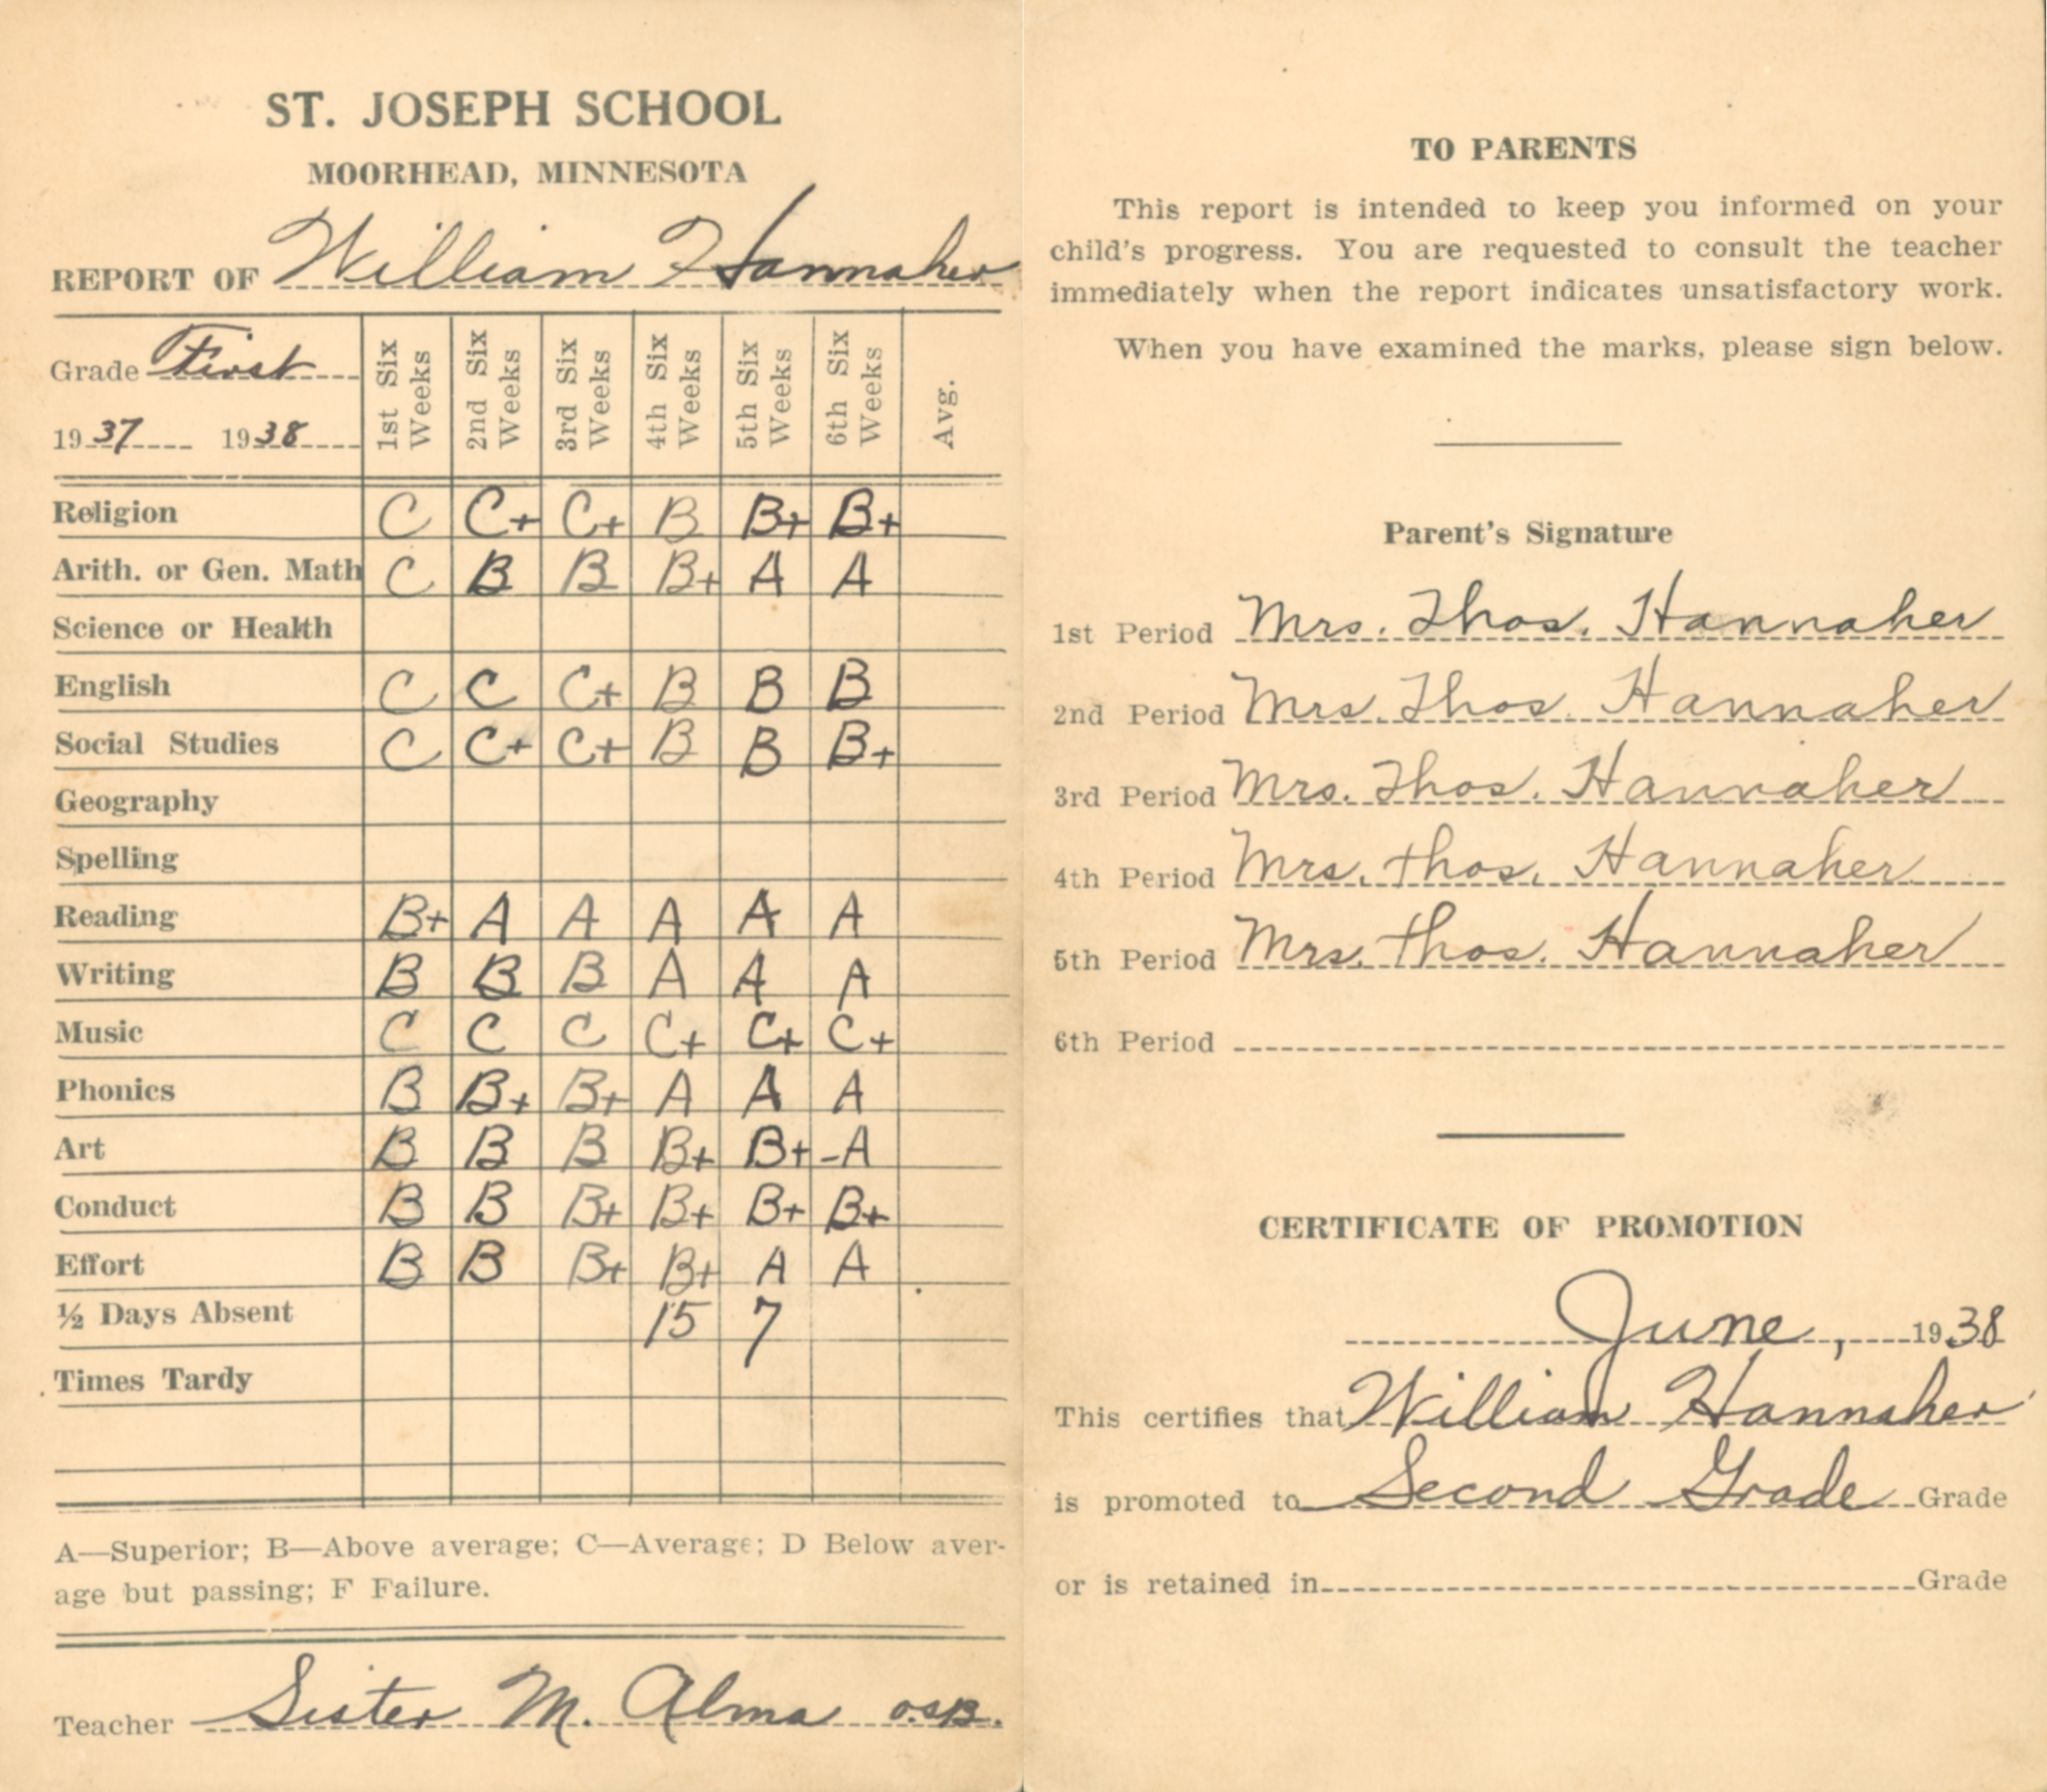 ST. JOSEPH SCHOOL
MOORHEAD, MINNESOTA
REPORT OF William Hannaher
Grade First
1937 1938
1st Six Weeks 2nd Six Weeks 3rd Six Weeks 4th Six Weeks 5th Six Weeks 6th Six Weeks Avg.
Religion C C+ C+ B B+ B+
Arith. or Gen. Math C B B B+ A A
Science or Health
English C C C+ B B B
Social Studies C C+ C+ B B B+
Geography
Spelling
Reading B+ A A A A A
Writing B B B A A A
Music C C C C+ C+ C+
Phonics B B+ B+ A A A
Art B B B B+ B+ -A
Conduct B B B+ B+ B+ B+
Effort B B B+ B+ A A
½ Days Absent 15 7
Times Tardy
A—Superior; B—Above average; C—Average; D Below aver-
age but passing; F Failure.
Teacher Sister M. Alma O.S.B.
TO PARENTS
This report is intended to keep you informed on your
child's progress. You are requested to consult the teacher
immediately when the report indicates unsatisfactory work.
When you have examined the marks, please sign below.
Parent's Signature
1st Period Mrs. Thos. Hannaher
2nd Period Mrs. Thos. Hannaher
3rd Period Mrs. Thos. Hannaher
4th Period Mrs. Thos. Hannaher
5th Period Mrs. Thos. Hannaher
6th Period
CERTIFICATE OF PROMOTION
June, 1938
This certifies that William Hannaher
is promoted to Second Grade Grade
or is retained in Grade